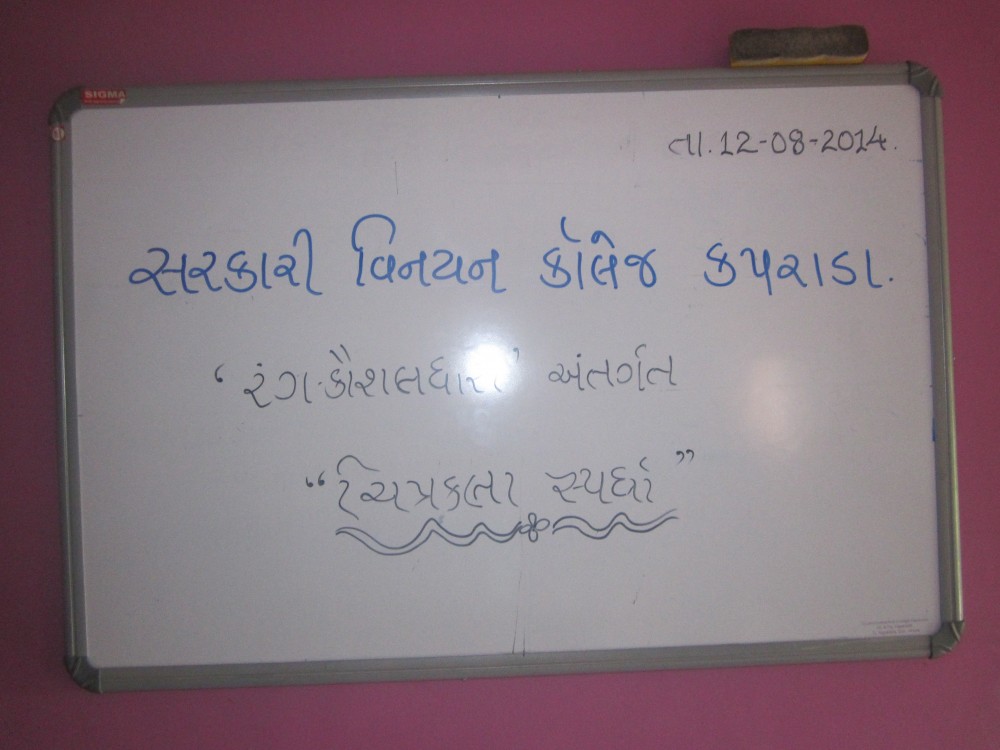 SIGMA
તા. 12-08-2014.
સરકારી વિનયન કૉલેજ કપરાડા.
‘રંગ-કૌશલધારા’ અંતર્ગત
“ચિત્રકલા સ્પર્ધા”